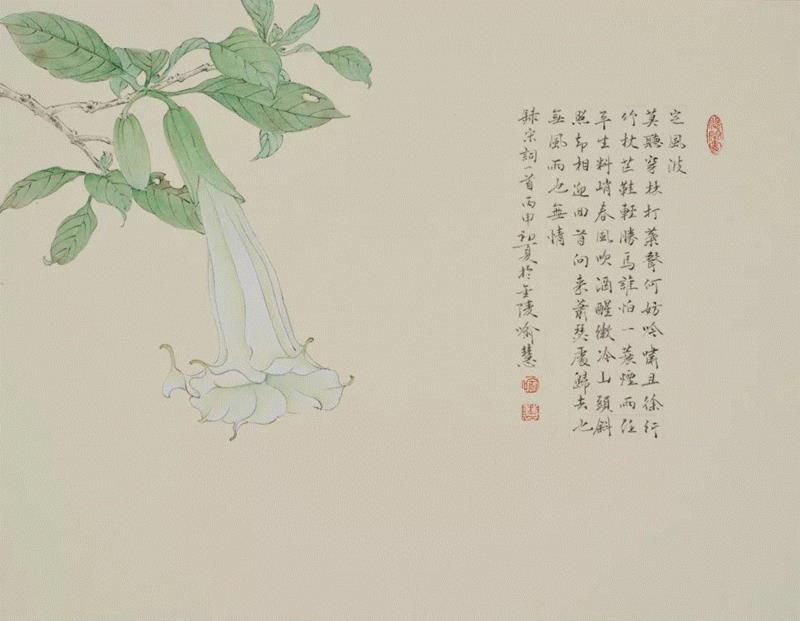 定風波
莫聽穿林打葉聲何妨吟嘯且徐行
竹杖芒鞋輕勝馬誰怕一蓑煙雨任
平生料峭春風吹酒醒微冷山頭斜
照却相迎回首向来蕭瑟處歸去也
無風雨也無情
錄宋詞一首丙申初夏於金陵喻慧